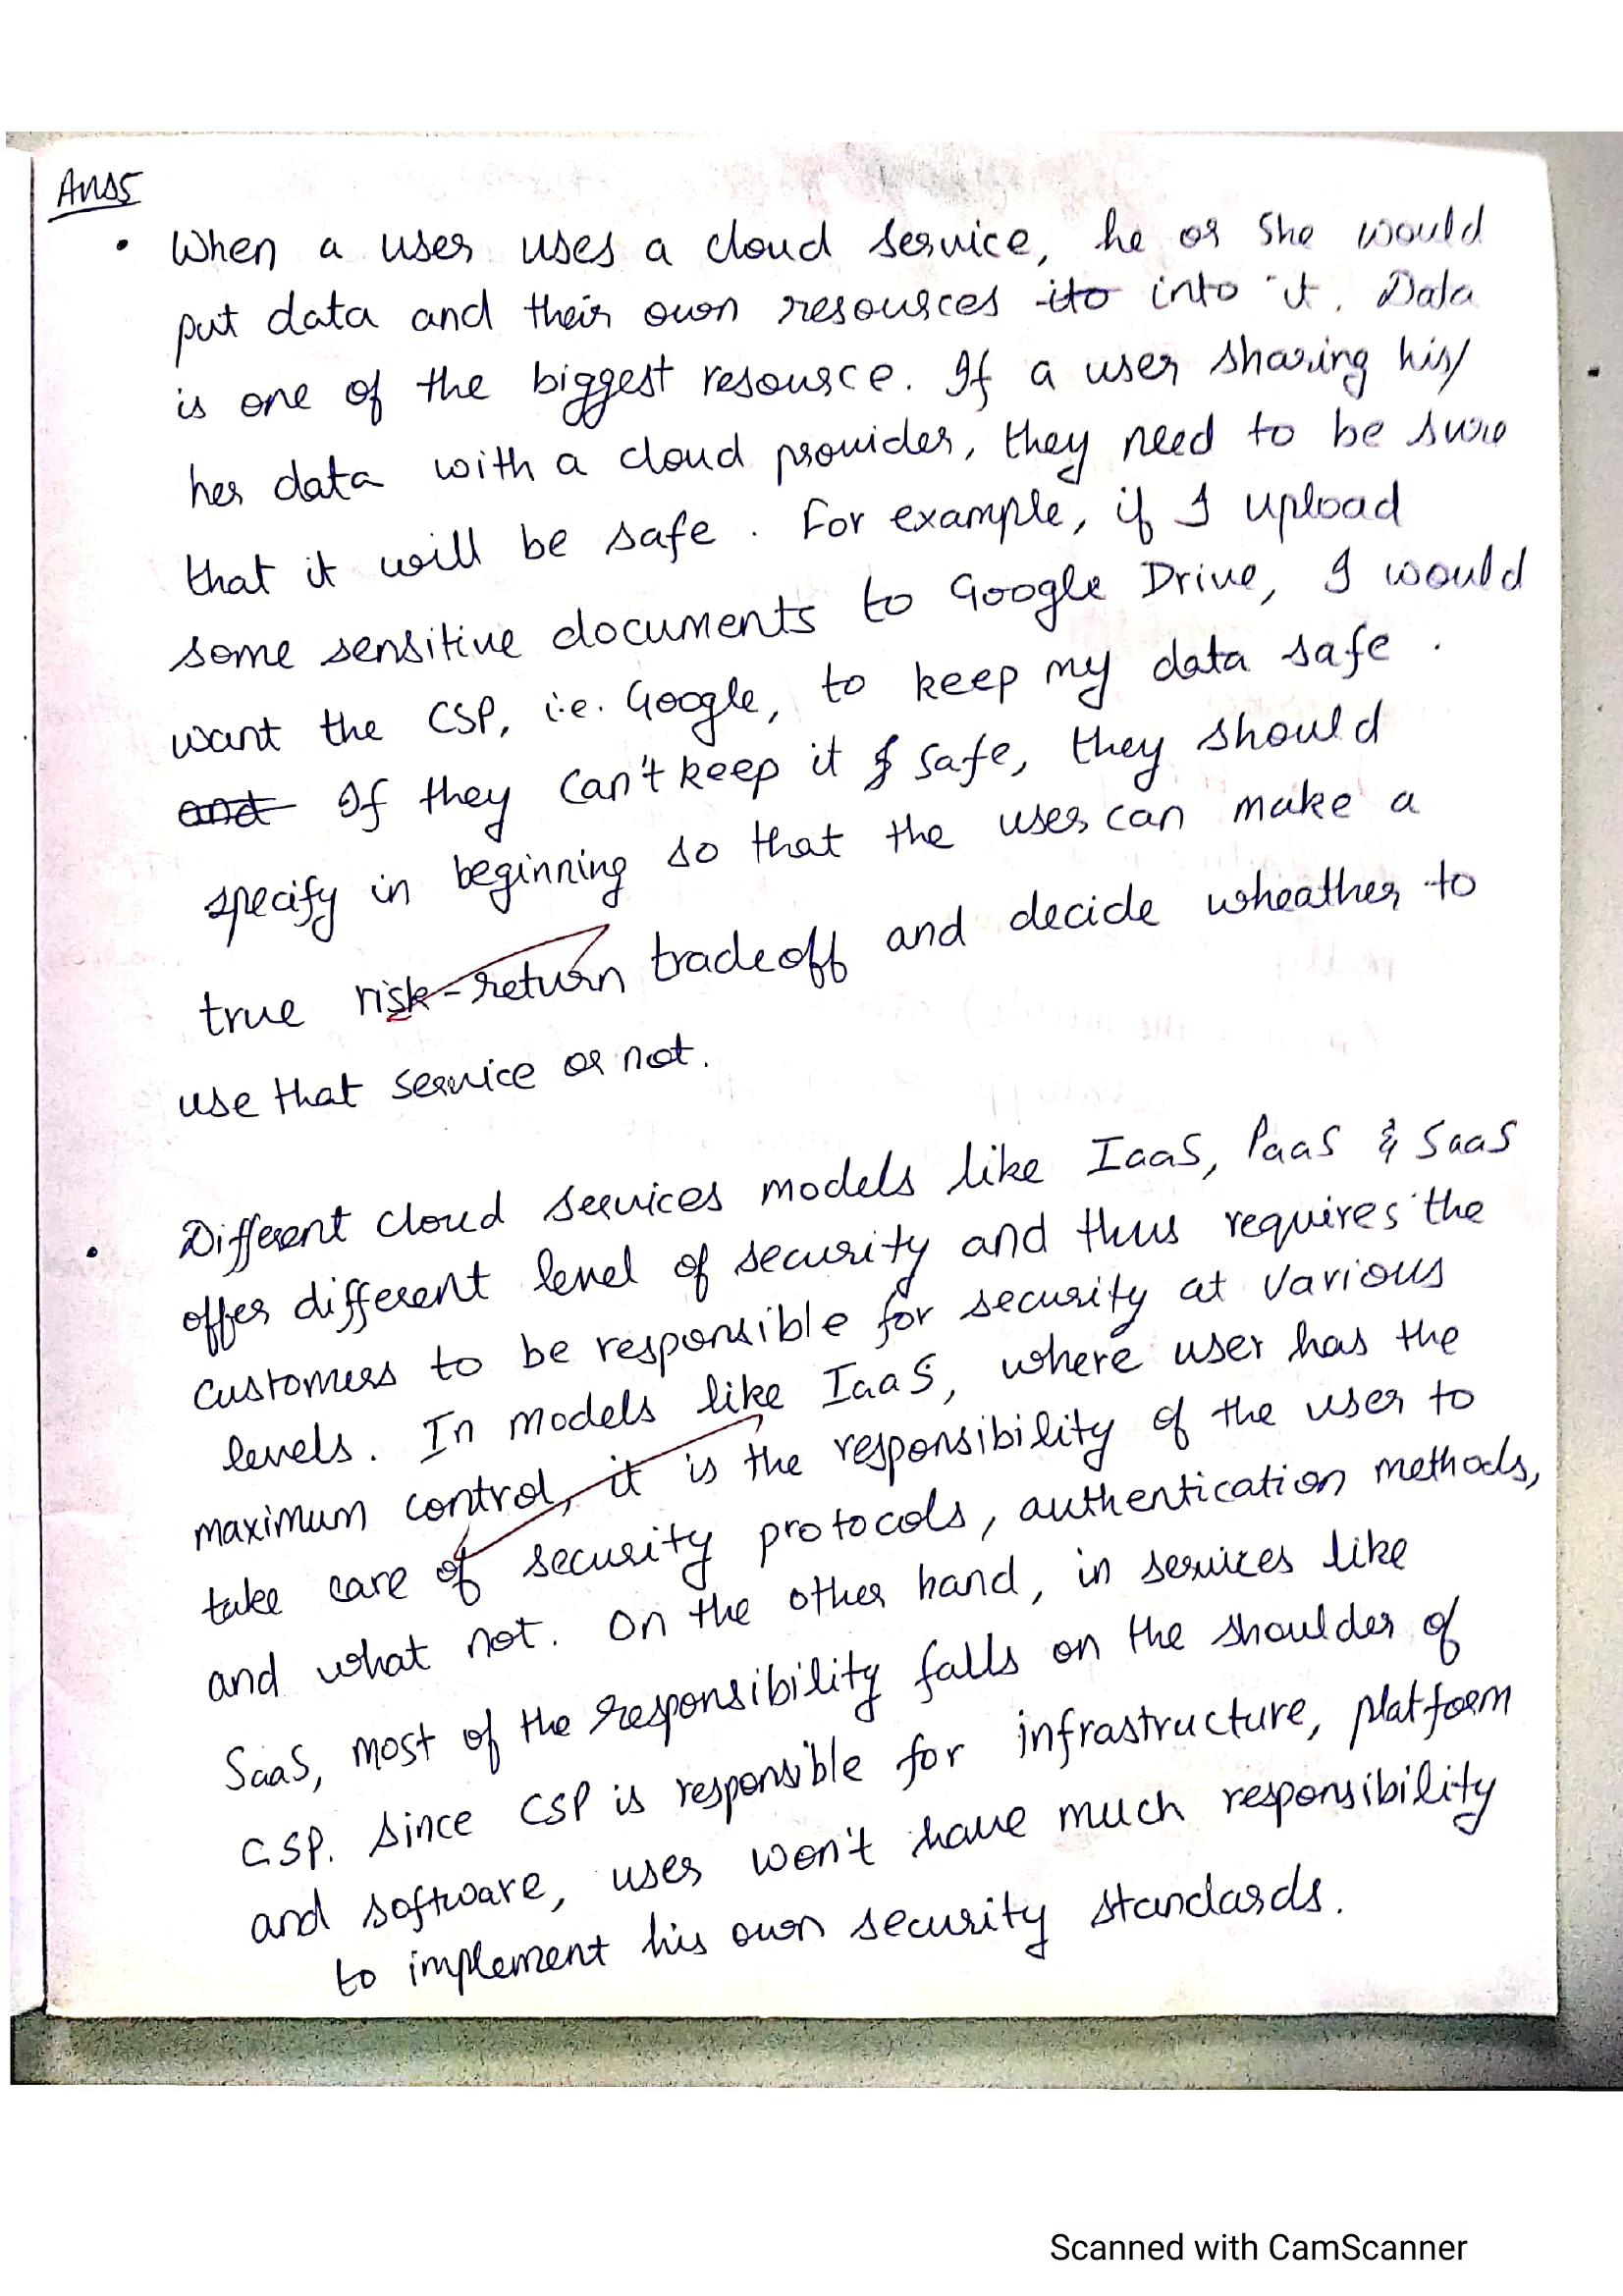 Ans5
• When a user uses a cloud service, he or she would
put data and their own resources ito into it. Data
is one of the biggest resource. If a user sharing his/
her data with a cloud provider, they need to be sure
that it will be safe. For example, if I upload
some sensitive documents to Google Drive, I would
want the CSP, i.e. Google, to keep my data safe.
and If they can't keep it safe, they should
specify in beginning so that the user can make a
true risk-return tradeoff and decide wheather to
use that service or not.
• Different cloud services models like IaaS, PaaS & SaaS
offer different level of security and thus requires the
customers to be responsible for security at various
levels. In models like IaaS, where user has the
maximum control, it is the responsibility of the user to
take care of security protocols, authentication methods,
and what not. On the other hand, in services like
SaaS, most of the responsibility falls on the shoulder of
CSP. Since CSP is responsible for infrastructure, platform
and software, user won't have much responsibility
to implement his own security standards.
Scanned with CamScanner